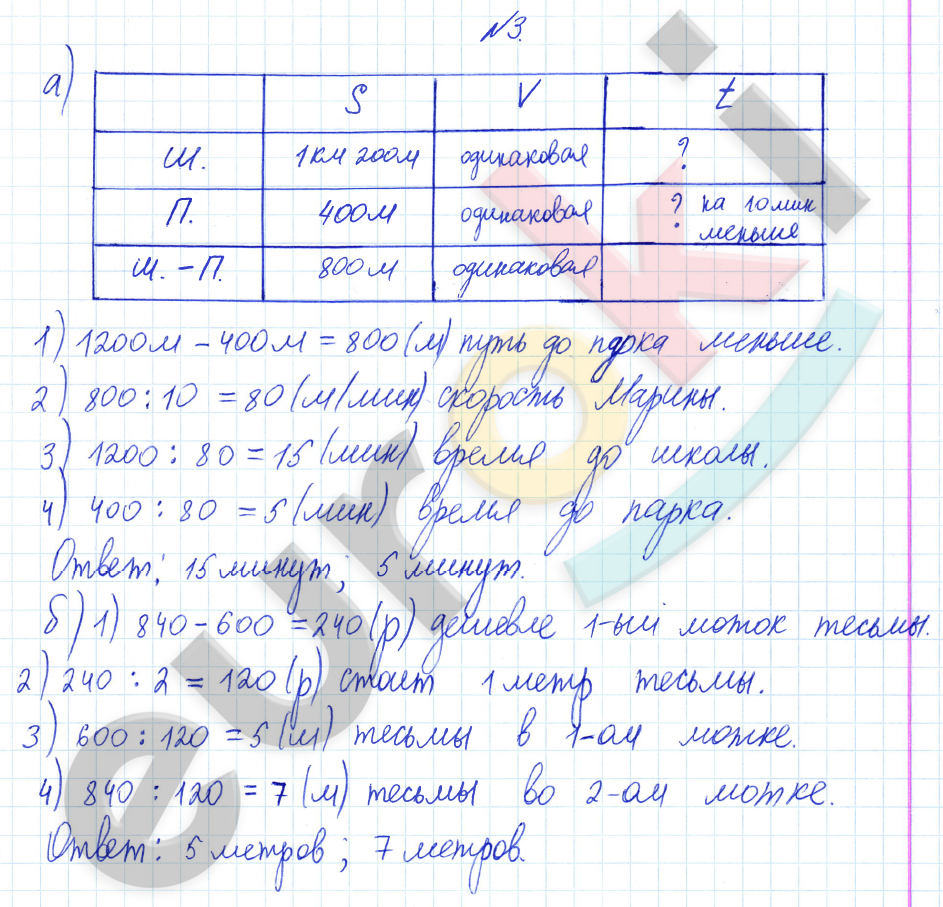 №3.
а)
S V t
Ш. 1км 200м одинаковая ?
П. 400м одинаковая ? на 10мин меньше
Ш. - П. 800м одинаковая
1) 1200м - 400м = 800 (м) путь до парка меньше.
2) 800 : 10 = 80 (м/мин) скорость Марины.
3) 1200 : 80 = 15 (мин) время до школы.
4) 400 : 80 = 5 (мин) время до парка.
Ответ: 15 минут; 5 минут.
б) 1) 840 - 600 = 240 (р) дешевле 1-ый моток тесьмы.
2) 240 : 2 = 120 (р) стоит 1 метр тесьмы.
3) 600 : 120 = 5 (м) тесьмы в 1-ом мотке.
4) 840 : 120 = 7 (м) тесьмы во 2-ом мотке.
Ответ: 5 метров; 7 метров.
euroki